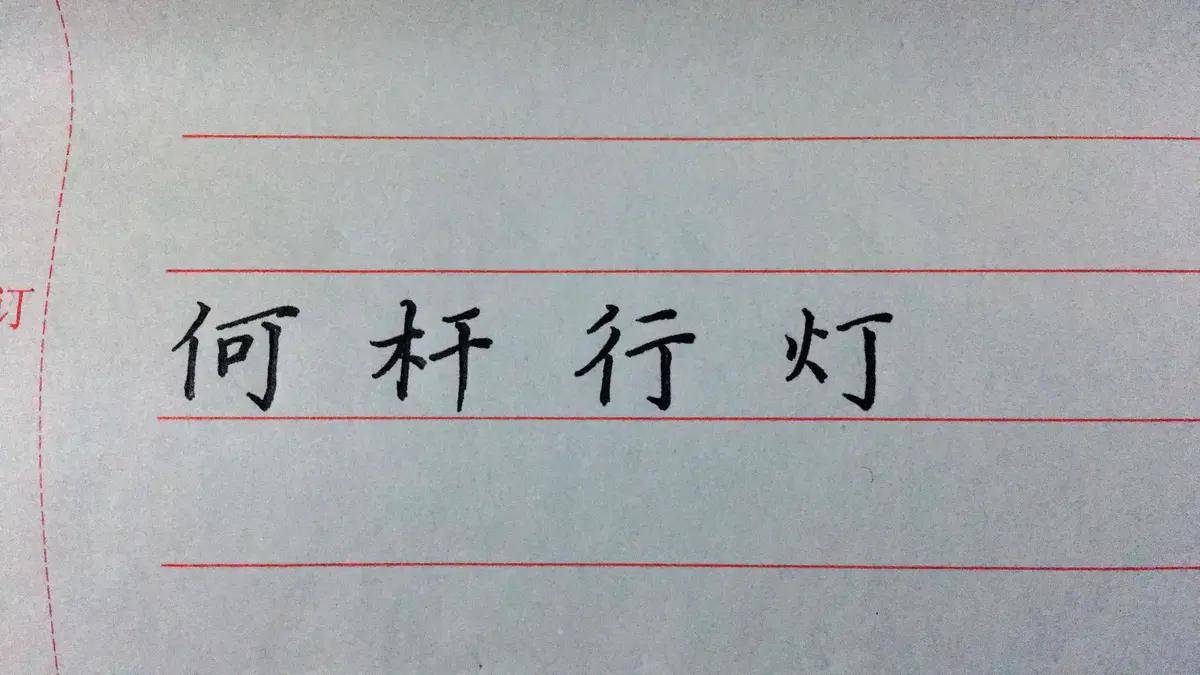 订
何 杆 行 灯